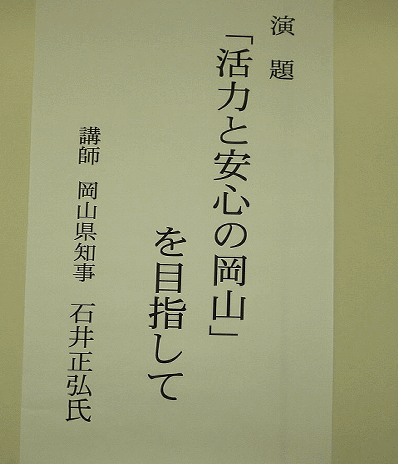 演題
「活力と安心の岡山」
を目指して
講師 岡山県知事 石井正弘氏